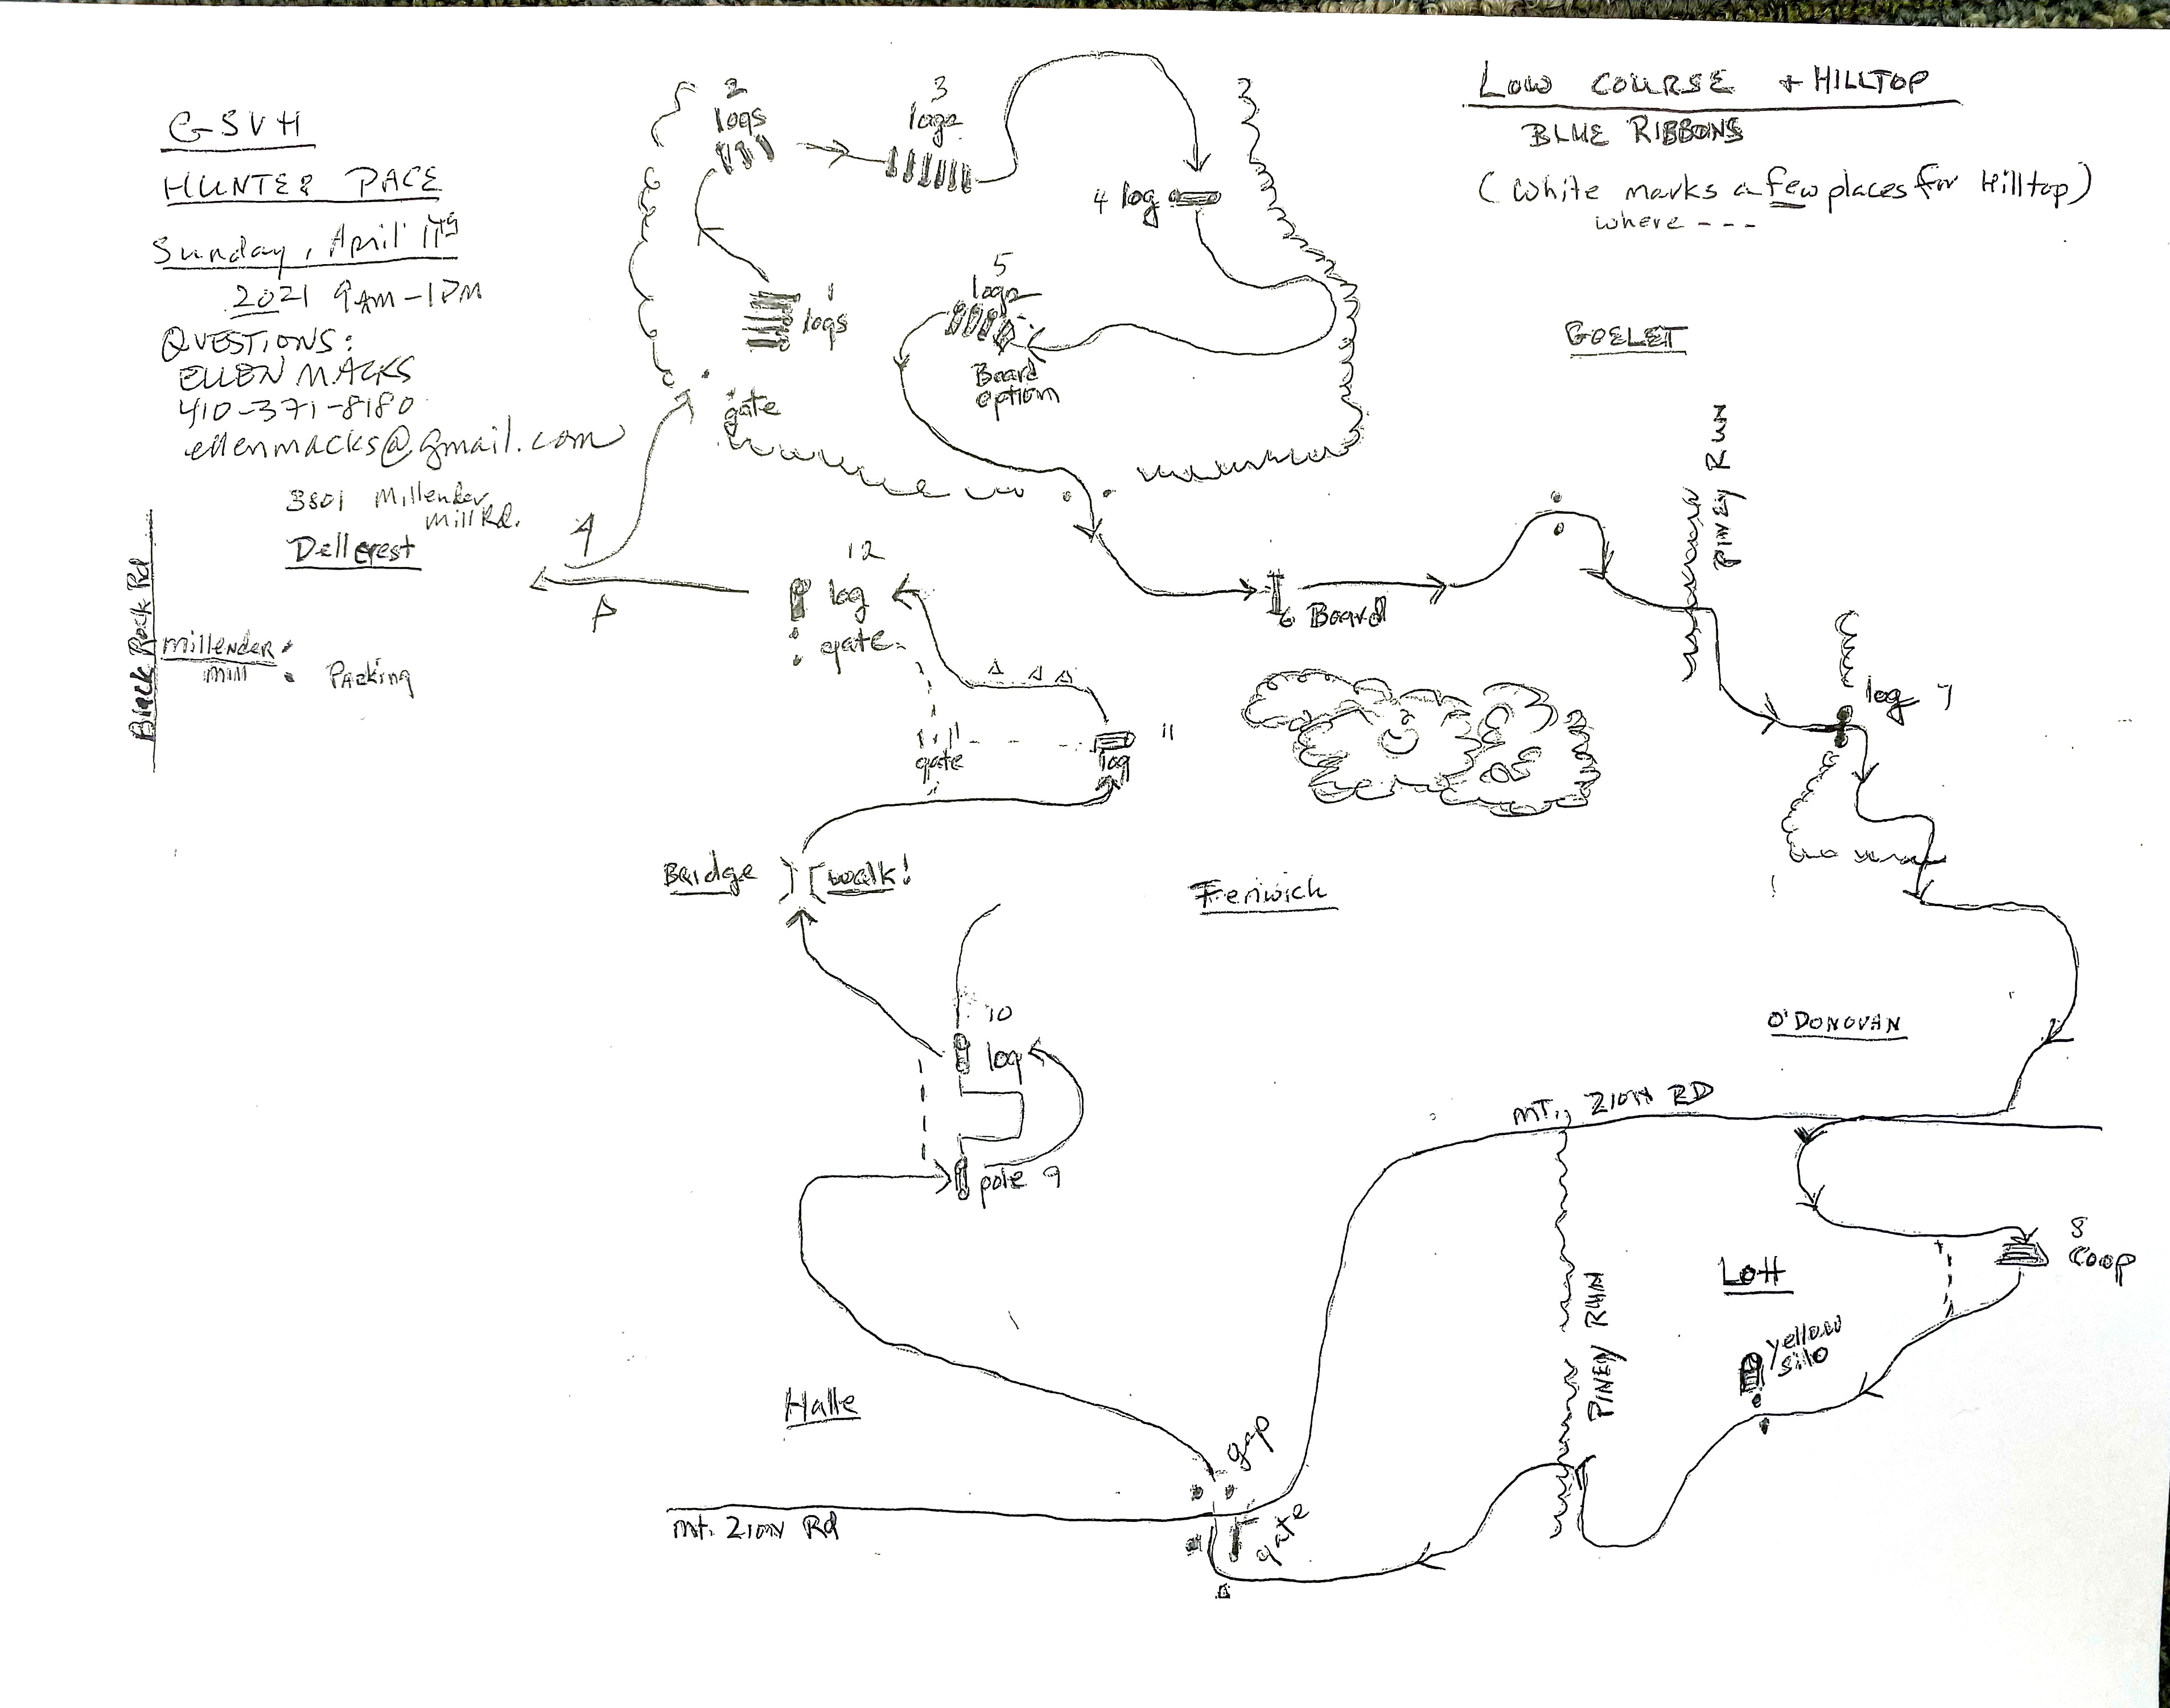 GSVH
HUNTER PACE
Sunday, April 11th
2021 9AM-1PM
QUESTIONS:
ELLEN MACKS
410-371-8180
ellenmacks@gmail.com
3801 Millender
Mill Rd.
Dellcrest
Black Rock Rd
Millender
Mill
Parking
LOW COURSE + HILLTOP
BLUE RIBBONS
(White marks a few places for Hilltop)
where ---
2
logs
3
logs
4 log
1
logs
5
logs
Board
option
gate
GOELET
PINEY RUN
6 Board
log 7
12
log
gate
11
log
gate
Bridge
walk!
Fenwick
10
log
pole 9
O'DONOVAN
MT. ZION RD
8
coop
Lott
yellow
silo
PINEY RUN
Halle
gap
gate
Mt. ZION Rd